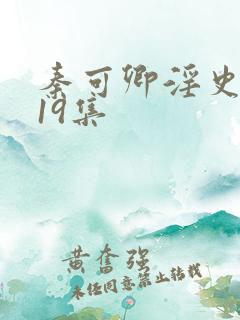 秦可卿淫史
19集
黄奋强
未经同意禁止转载